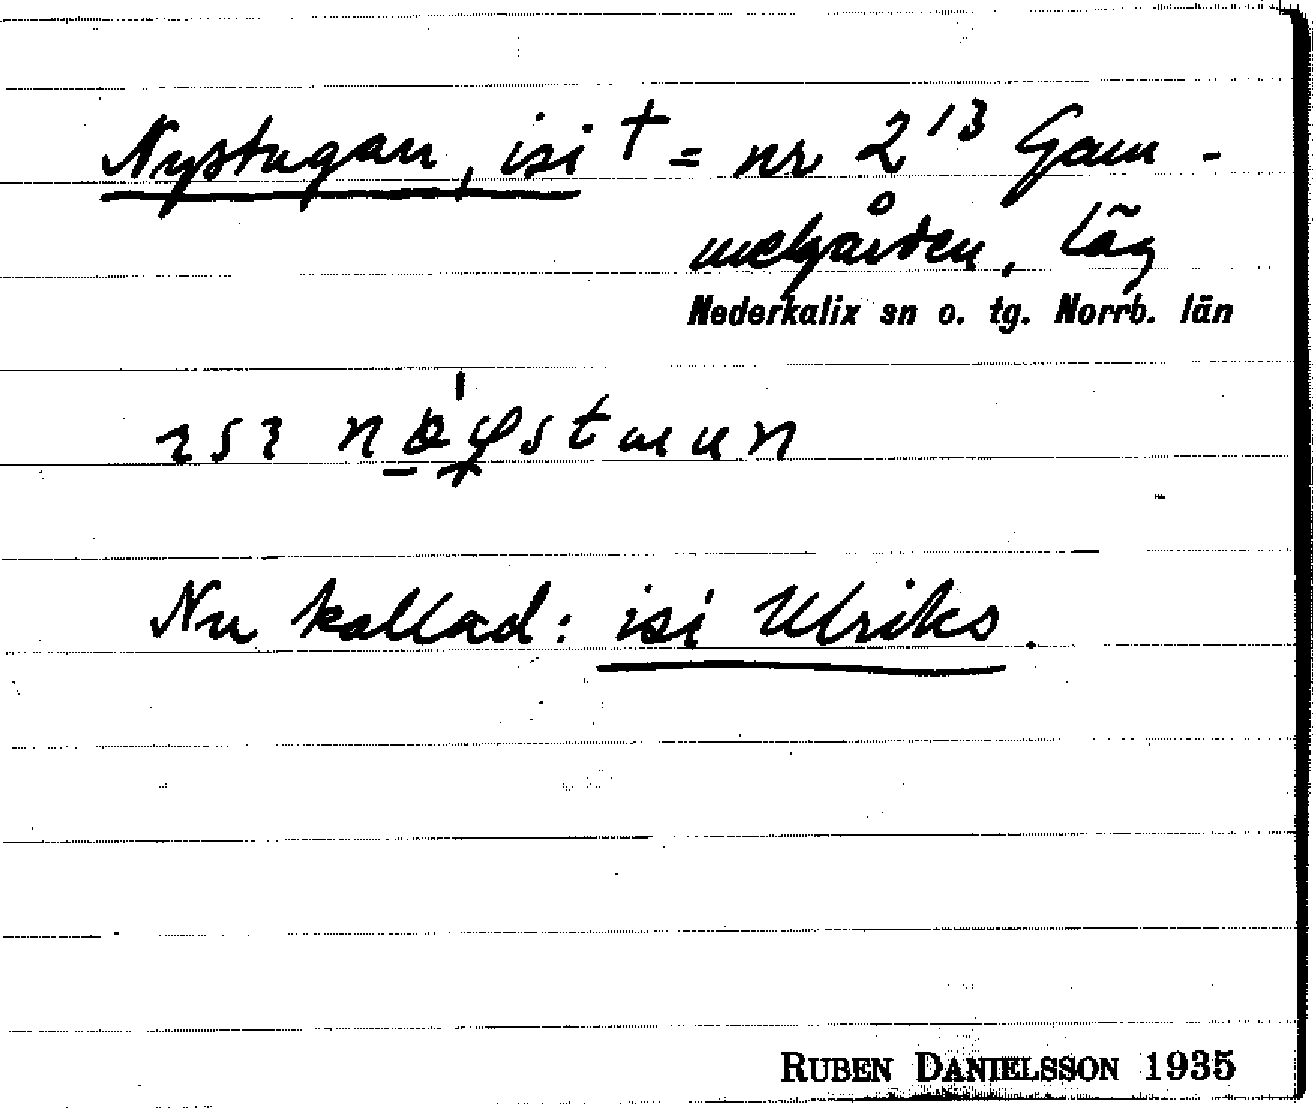 Nystugan, isi † = nr 2¹³ Gam-
melgården, läg
Nederkalix sn o. tg. Norrb. län
Nu kallad: isi Ulriks.
RUBEN DANIELSSON 1935